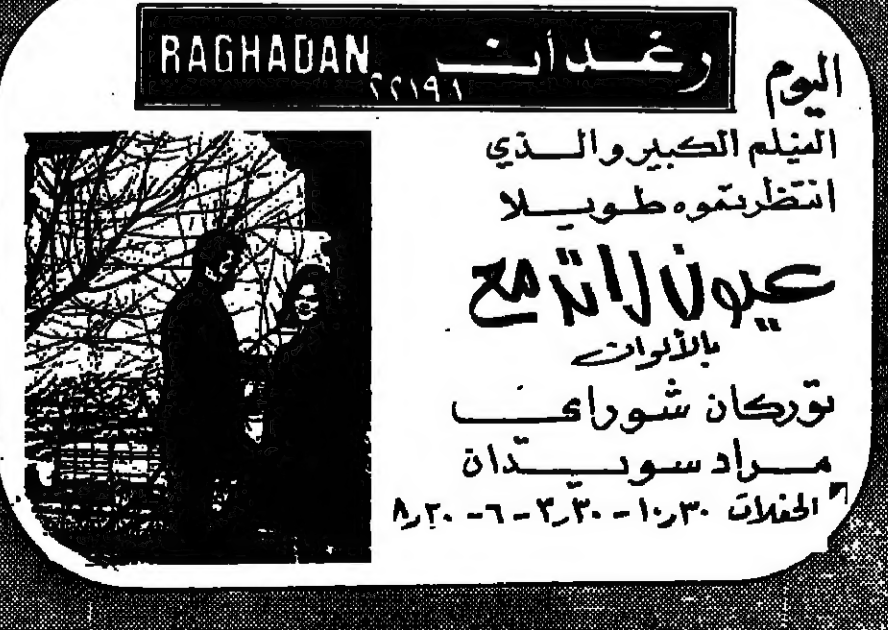 رغدان RAGHADAN
٢٢١٩٨
اليوم
الفيلم الكبير والذي
انتظرتموه طويلا
عيون لا تدمع
بالألوان
توركان شوراي
مراد سويدان
الحفلات ١٠٫٣٠ - ٣٫٣٠ - ٦ - ٨٫٢٠